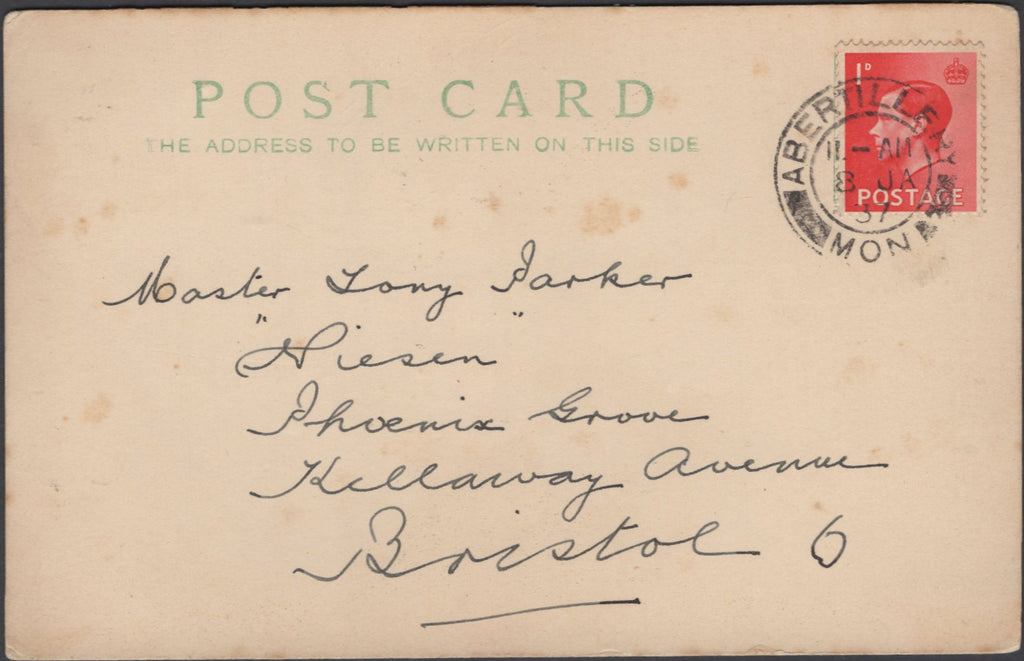 POST CARD
THE ADDRESS TO BE WRITTEN ON THIS SIDE
1D
POSTAGE
ABERTILLERY
11 - AM
8 JA
37
MON
Master Tony Parker
"Niesen"
Phoenix Grove
Kellaway Avenue
Bristol 6